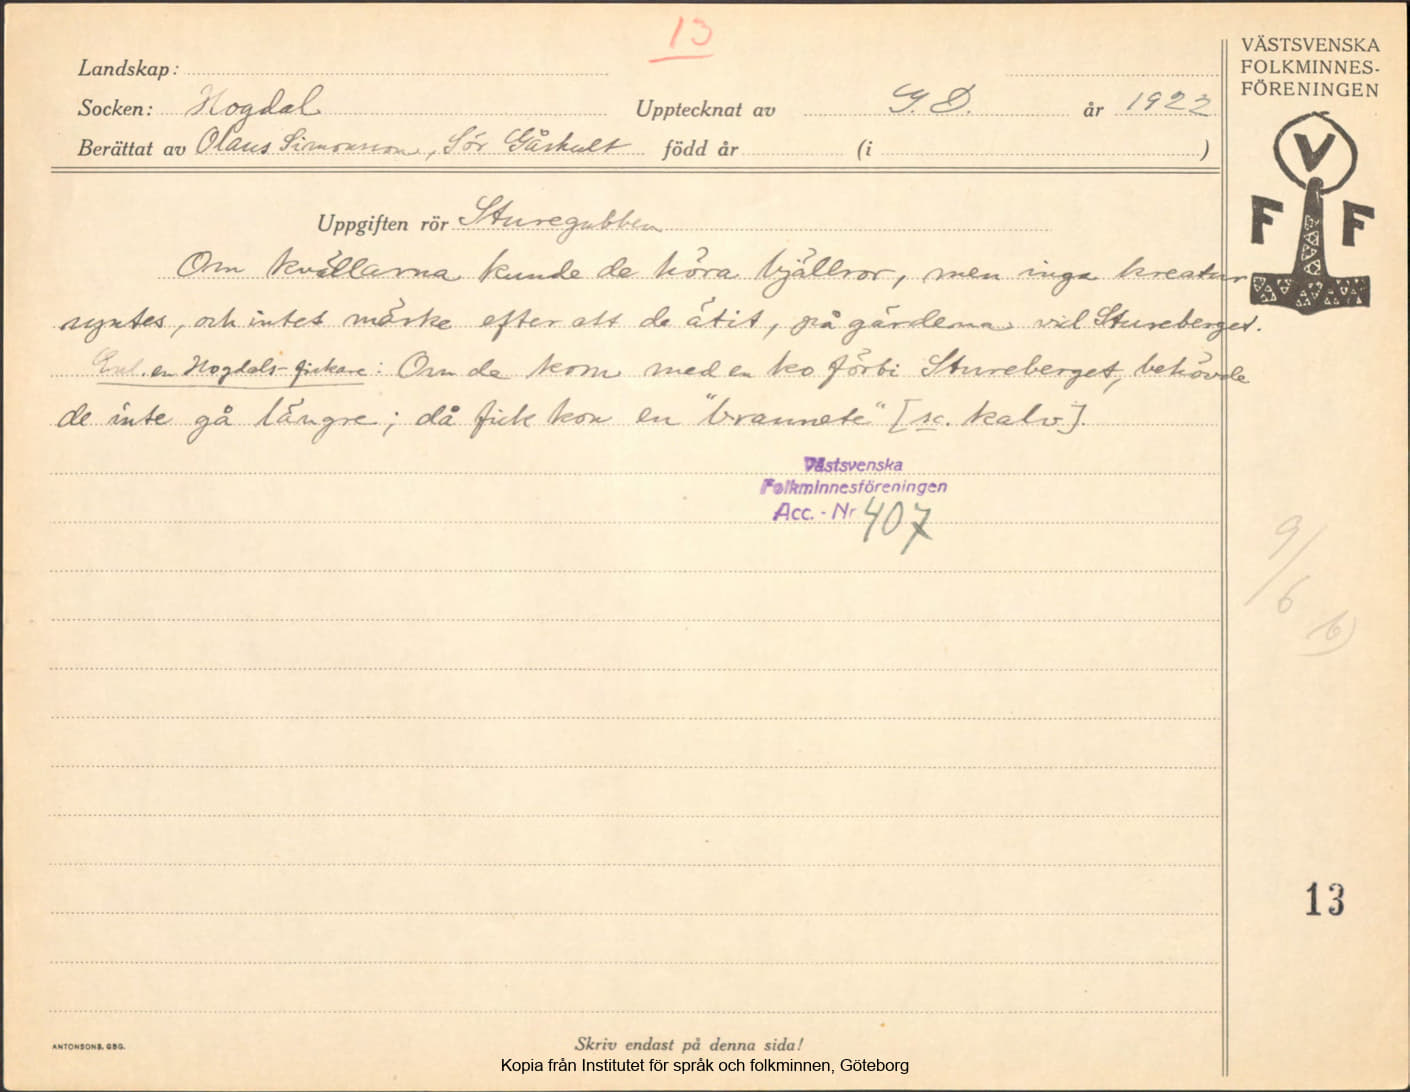 13
Landskap:
Socken: Hogdal Upptecknat av G. D. år 1922
Berättat av Olaus Simonsson, Sör Gåskult född år (i )
VÄSTSVENSKA
FOLKMINNES-
FÖRENINGEN
V
F F
Uppgiften rör Sturegubben
Om kvällarna kunde de höra bjällror, men inga kreatur
syntes, och intet märke efter att de ätit, på gärdena vid Stureberget.
Enl. en Hogdals-fiskare: Om de kom med en ko förbi Stureberget, behövde
de inte gå längre; då fick kon en "brannete" [sc. kalv].
Västsvenska
Folkminnesföreningen
Acc. - Nr 407
9/6 b)
13
ANTONSONS, GBG.
Skriv endast på denna sida!
Kopia från Institutet för språk och folkminnen, Göteborg